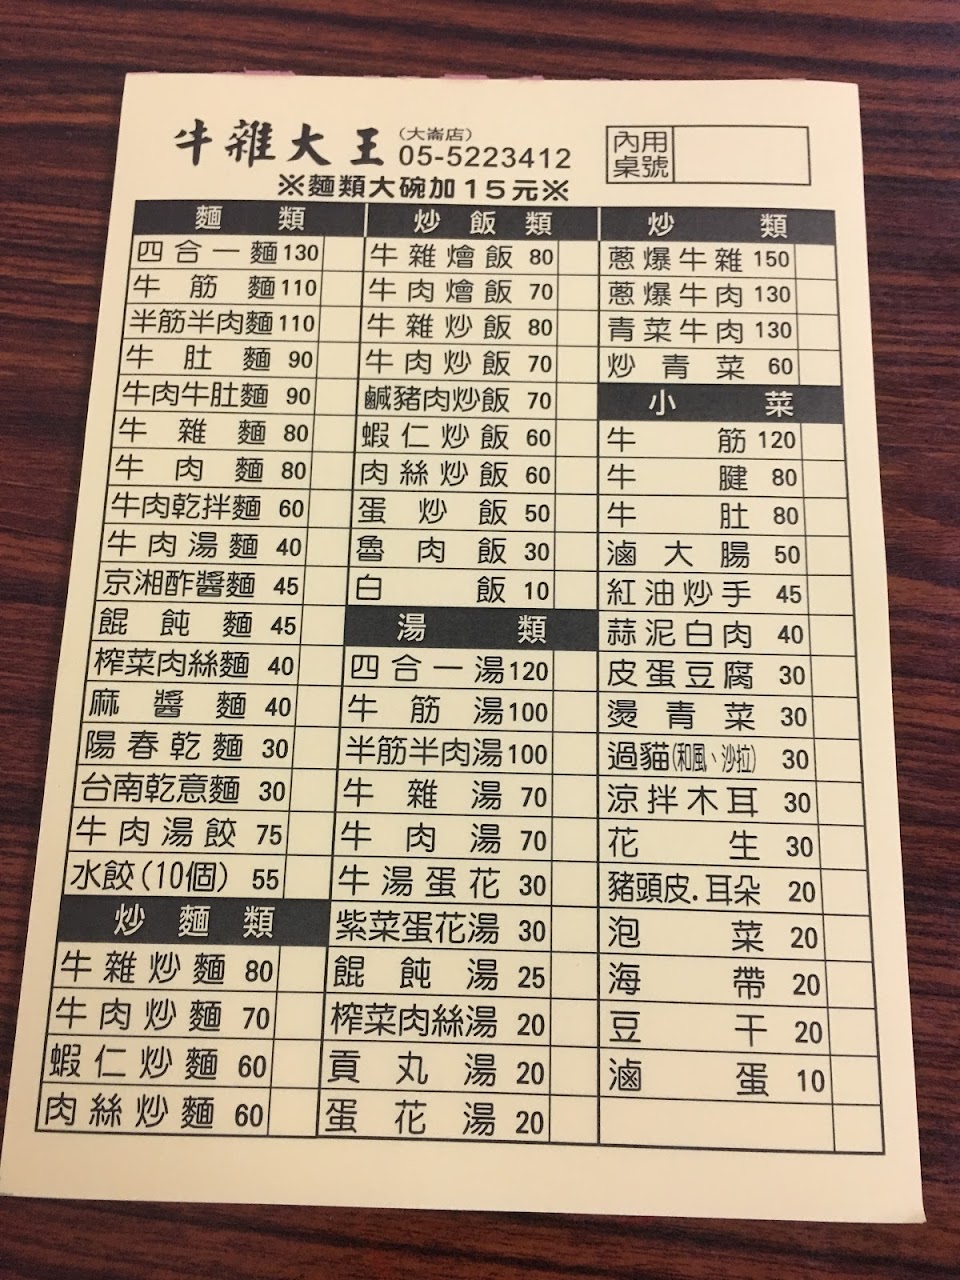 牛雜大王
(大崙店)
05-5223412
內用桌號
※麵類大碗加15元※
麵類
四合一麵 130
牛筋麵 110
半筋半肉麵 110
牛肚麵 90
牛肉牛肚麵 90
牛雜麵 80
牛肉麵 80
牛肉乾拌麵 60
牛肉湯麵 40
京湘酢醬麵 45
餛飩麵 45
榨菜肉絲麵 40
麻醬麵 40
陽春乾麵 30
台南乾意麵 30
牛肉湯餃 75
水餃(10個) 55
炒麵類
牛雜炒麵 80
牛肉炒麵 70
蝦仁炒麵 60
肉絲炒麵 60
炒飯類
牛雜燴飯 80
牛肉燴飯 70
牛雜炒飯 80
牛肉炒飯 70
鹹豬肉炒飯 70
蝦仁炒飯 60
肉絲炒飯 60
蛋炒飯 50
魯肉飯 30
白飯 10
湯類
四合一湯 120
牛筋湯 100
半筋半肉湯 100
牛雜湯 70
牛肉湯 70
牛湯蛋花 30
紫菜蛋花湯 30
餛飩湯 25
榨菜肉絲湯 20
貢丸湯 20
蛋花湯 20
炒類
蔥爆牛雜 150
蔥爆牛肉 130
青菜牛肉 130
炒青菜 60
小菜
牛筋 120
牛腱 80
牛肚 80
滷大腸 50
紅油炒手 45
蒜泥白肉 40
皮蛋豆腐 30
燙青菜 30
過貓(和風、沙拉) 30
涼拌木耳 30
花生 30
豬頭皮.耳朵 20
泡菜 20
海帶 20
豆干 20
滷蛋 10